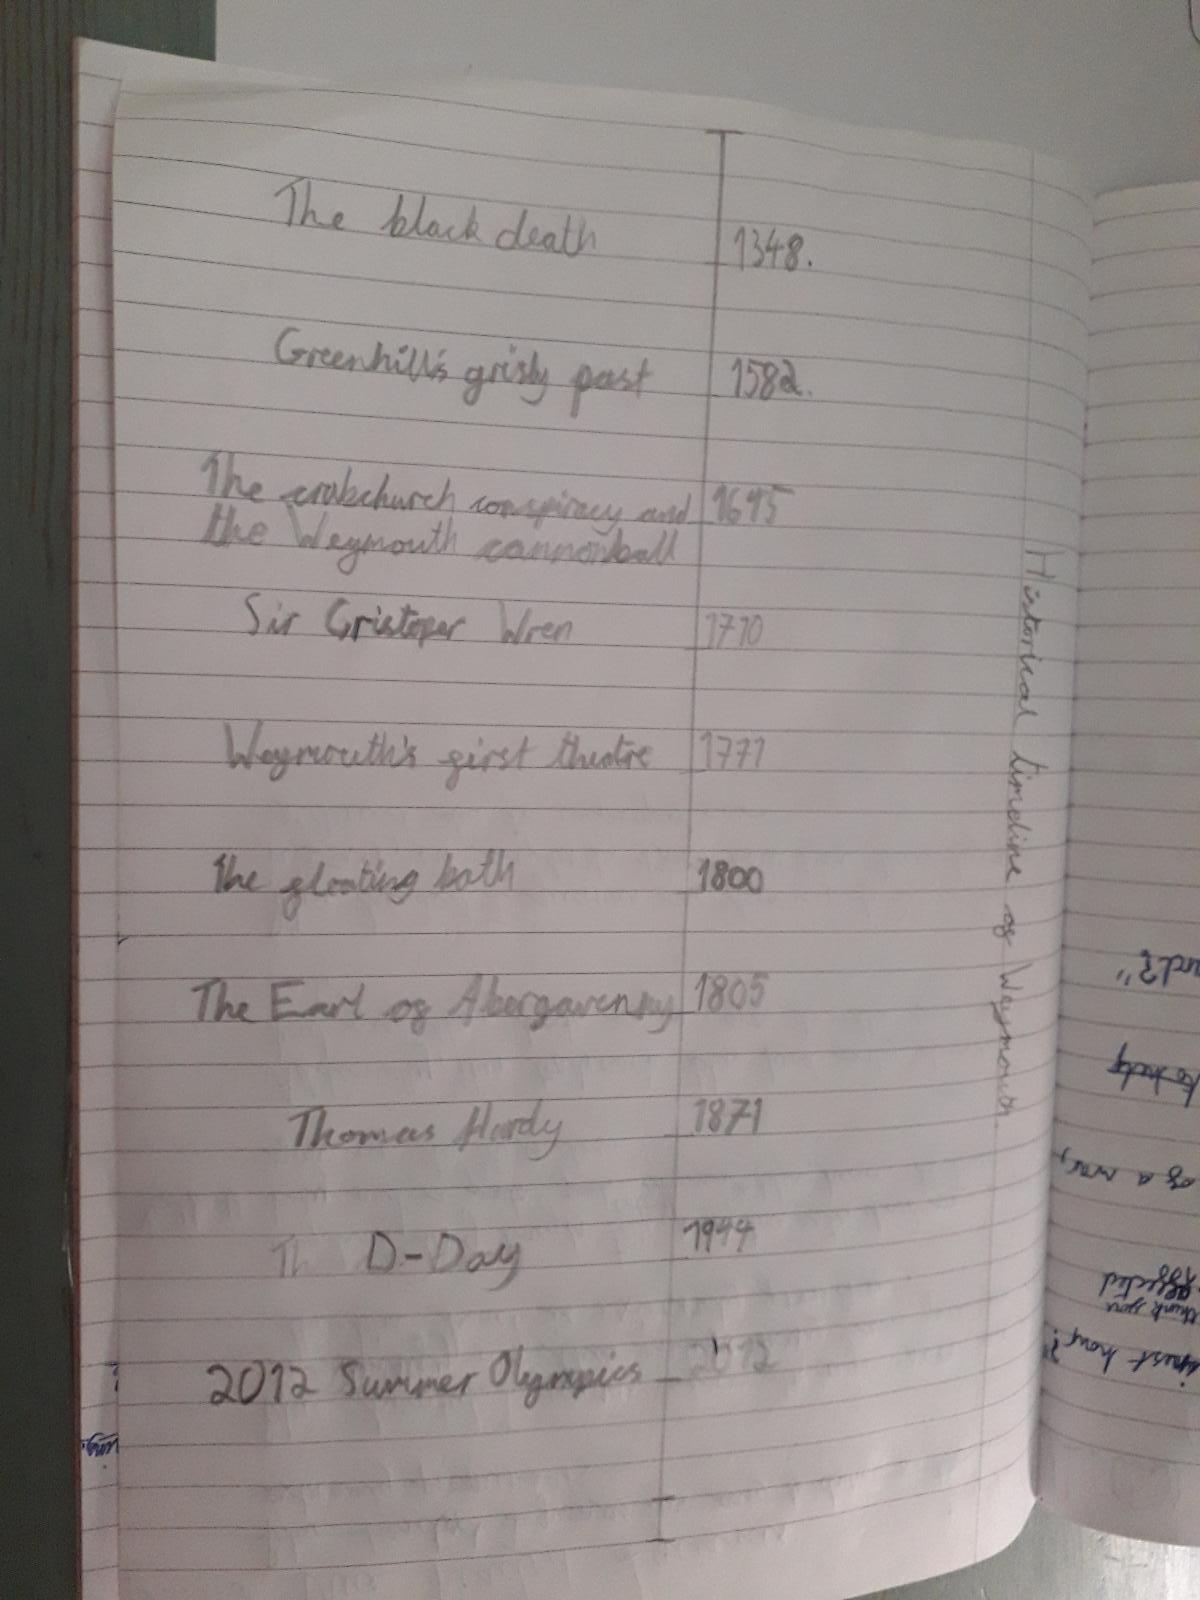 The black death 1348.
Greenhill's grisly past 1582.
The crabchurch conspiracy and 1645
the Weymouth cannonball
Sir Cristoper Wren 1710
Weymouth's first theatre 1771
The floating bath 1800
The Earl of Abergavenny 1805
Thomas Hardy 1871
Th D-Day 1944
2012 Summer Olympics 2012
Historical timeline of Weymouth
to help
of a war,
affected
think you